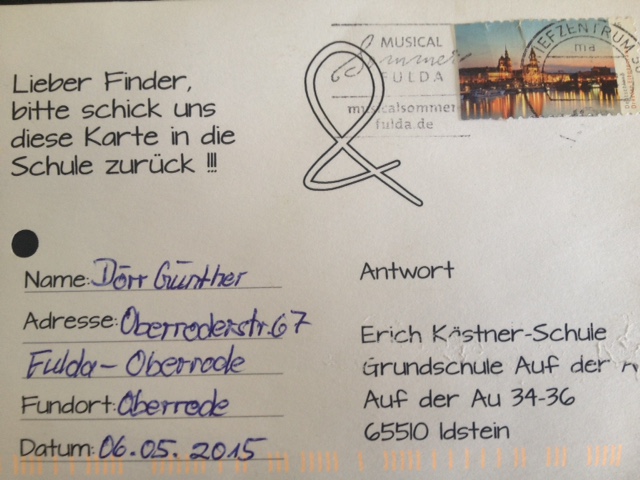 MUSICAL
Sommer
FULDA
musicalsommer
fulda.de
IEFZENTRUM
Lieber Finder,
bitte schick uns
diese Karte in die
Schule zurück !!!
Name: Dörr Günther
Adresse: Oberroderstr. 67
Fulda - Oberrode
Fundort: Oberrode
Datum: 06.05.2015
Antwort
Erich Kästner-Schule
Grundschule Auf der
Auf der Au 34-36
65510 Idstein